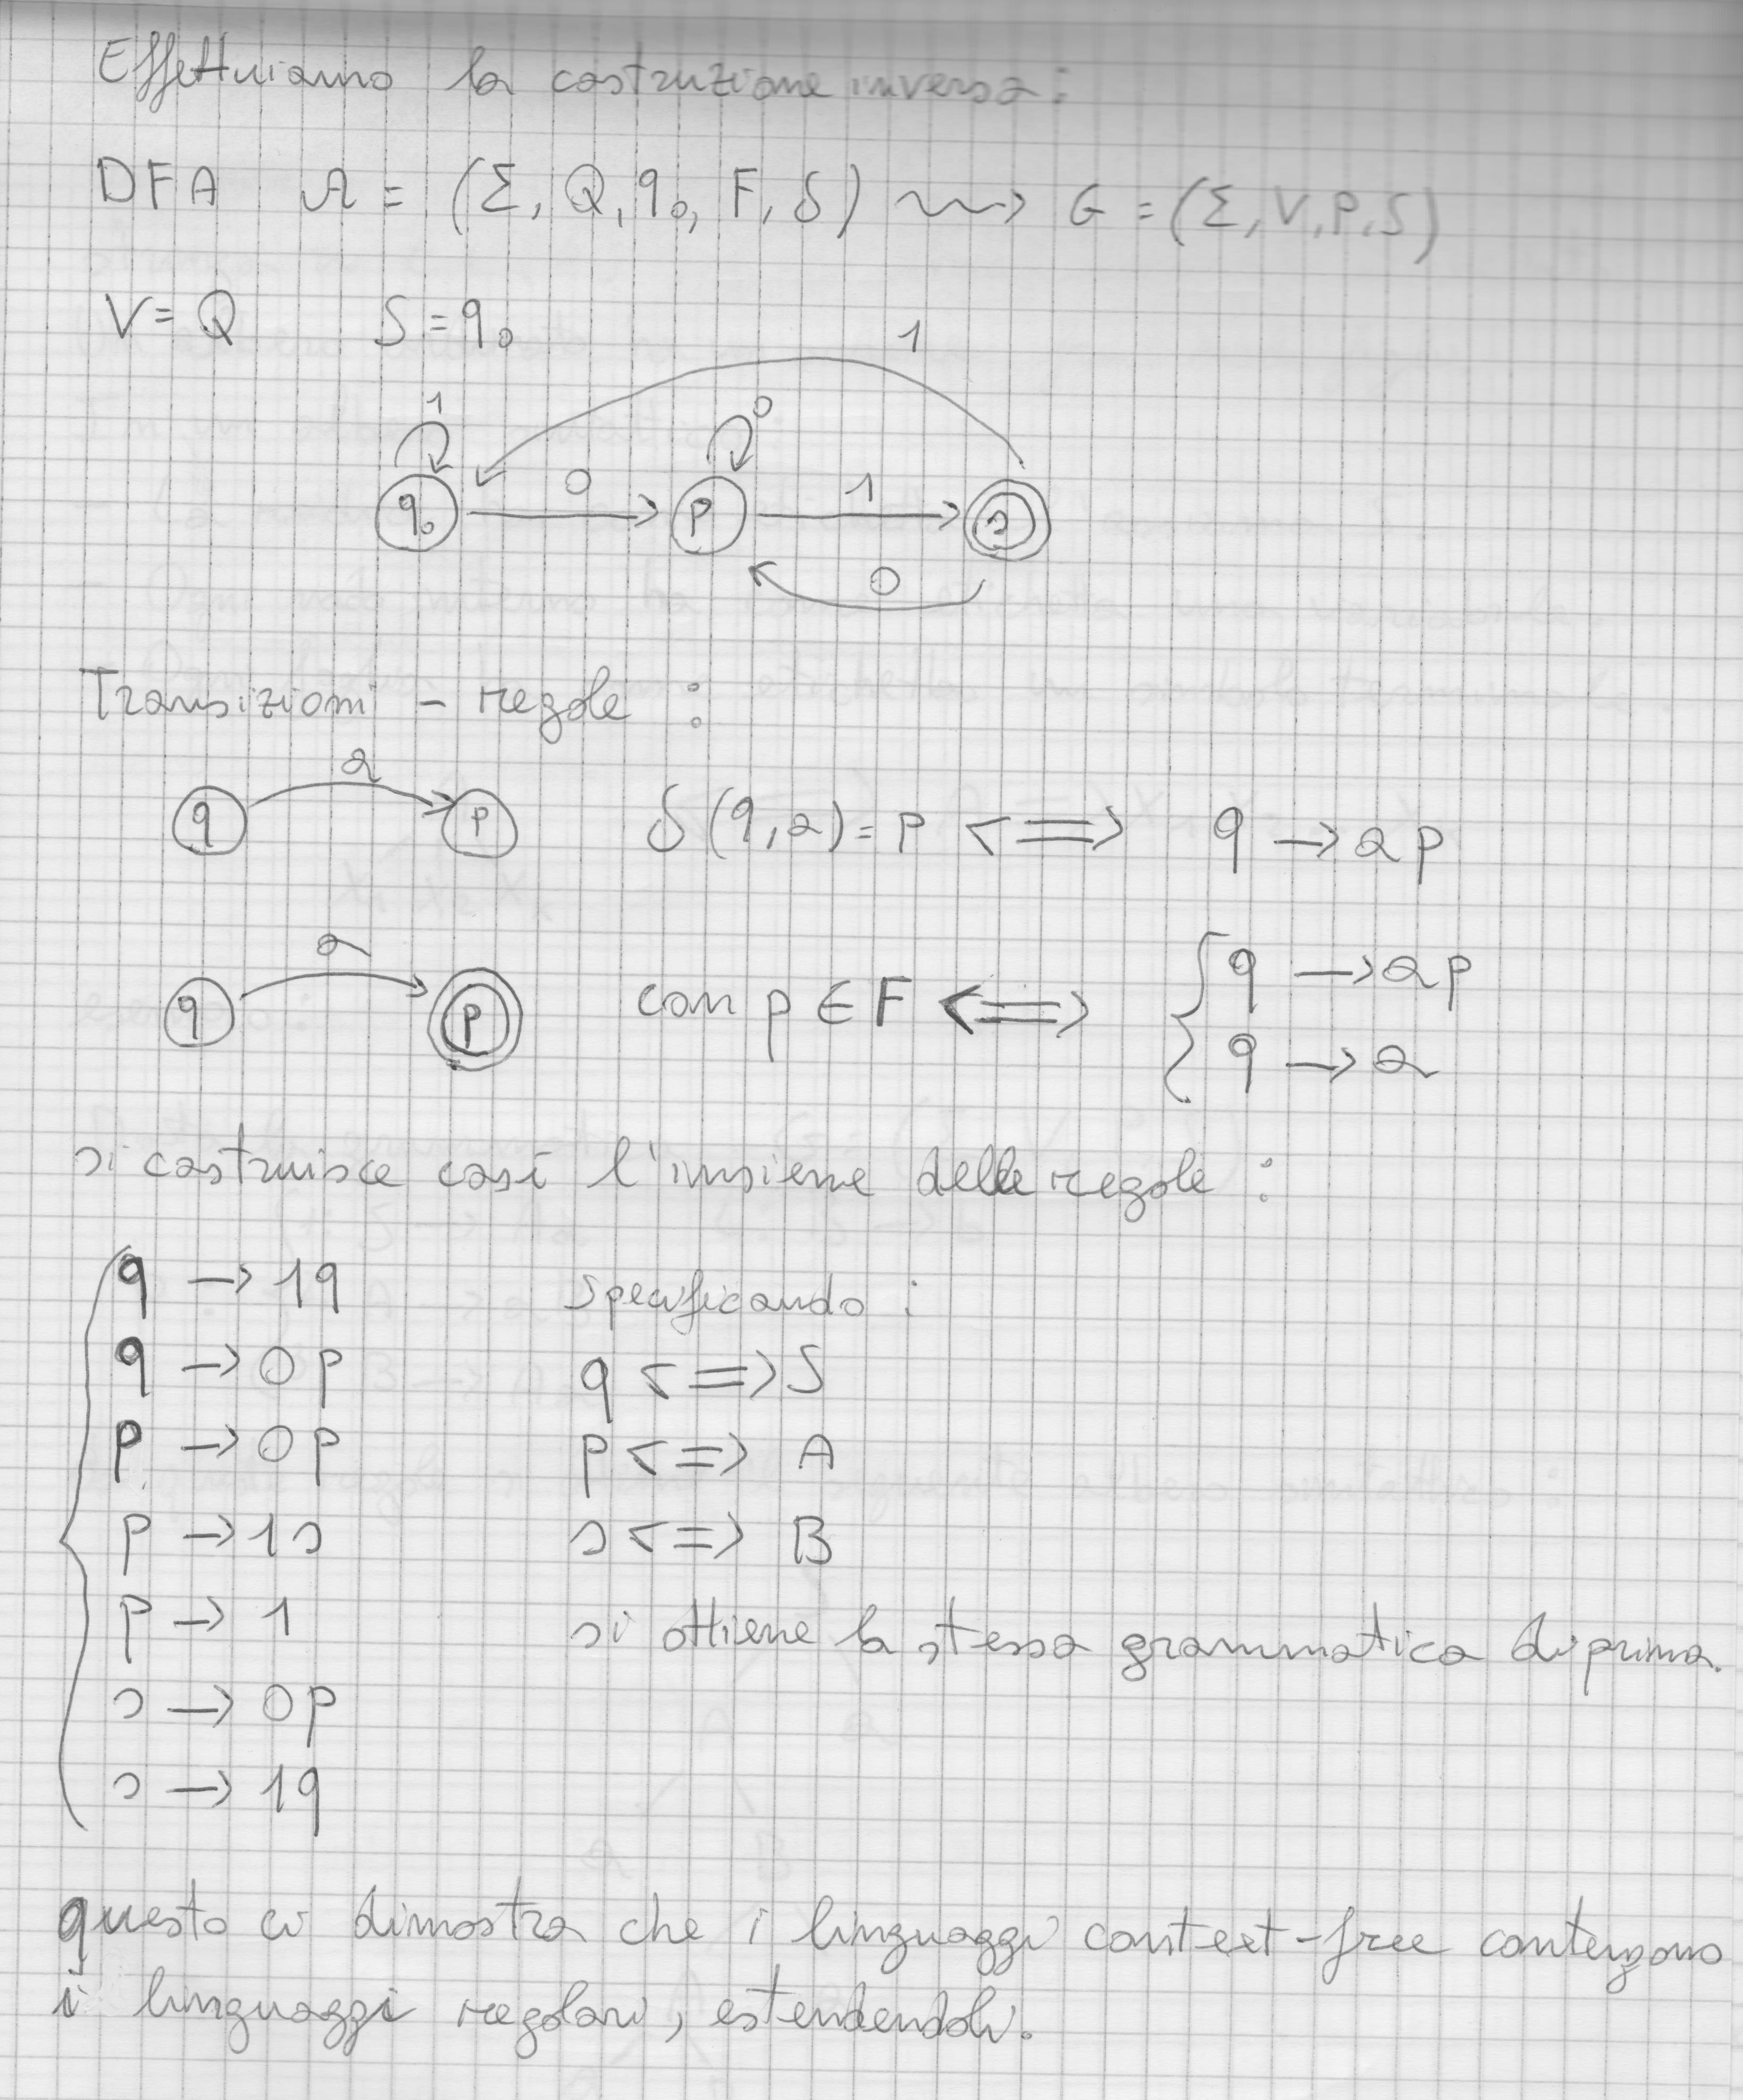 Effettuiamo la costruzione inversa:
DFA A = (Σ, Q, q₀, F, δ) ⇝ G = (Σ, V, P, S)
V = Q S = q₀
1
1 0
0 1
q₀ p s
0
Transizioni - regole :
a
q p δ(q,a) = p <=> q → a p
a
q p con p ∈ F <=> { q → a p
q → a
si costruisce così l'insieme delle regole :
q → 1q Specificando :
q → 0p q <=> S
p → 0p p <=> A
p → 1s s <=> B
p → 1 si ottiene la stessa grammatica di prima.
s → 0p
s → 1q
questo ci dimostra che i linguaggi context-free contengono
i linguaggi regolari, estendendoli.